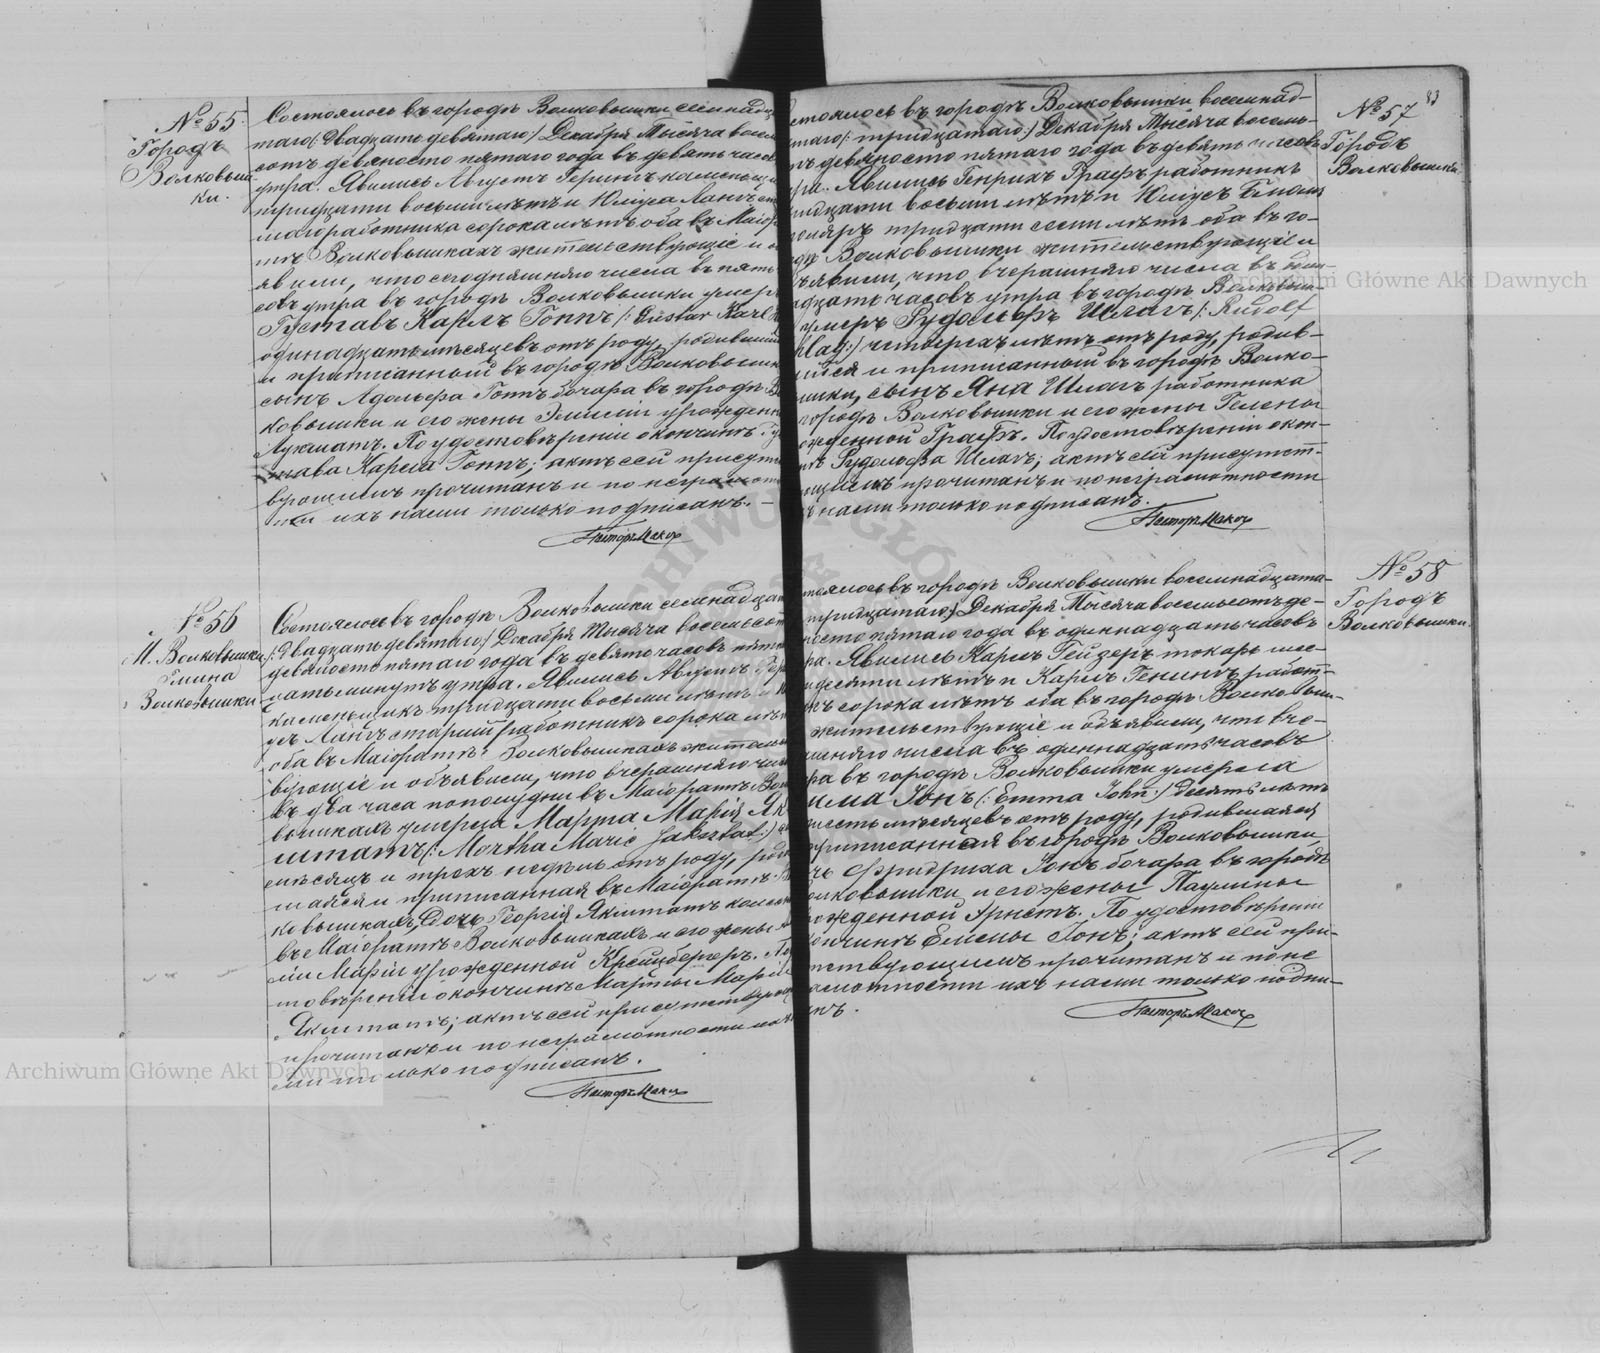 № 55.
Городъ
Волковыш-
ки.
Состоялось въ городѣ Волковышки семнадца
таго (: двадцать девятаго :) Декабря Тысяча восем
сотъ девяносто пятаго года въ девять часов
утра. Явились Августъ Герингъ каменьщи
тридцати восьми лѣтъ и Юлiусъ Лангъ
работника сорока лѣтъ оба въ Маiо
Волковышкахъ жительствующiе и о
явили, что сегодняшняго числа въ пять
совъ утра въ городѣ Волковышки умер
Густавъ Карлъ Гоппъ (: Gustav Karl
одинадцать мѣсяцевъ отъ роду, родившiй
и приписанный въ городѣ Волковыш
сынъ Адольфа Гоппъ бочара въ городѣ В
ковышки и его жены Эмилiи урожденн
Лукшатъ. По удостовѣренiи о кончинѣ Гу
става Карла Гоппъ; актъ сей присутст
вующимъ прочитанъ и по неграмотно
сти ихъ нами только подписанъ. —
Пасторъ
№ 56
М. Волковышки
Гмина
Волковышки
Состоялось въ городѣ Волковышки семнадца
(: двадцать девятаго :) Декабря Тысяча восемьсот
девяносто пятаго года въ девять часовъ пятн
цать минутъ утра. Явились Августъ Гер
каменьщикъ тридцати восьми лѣтъ и Ю
усъ Лангъ старшiй работникъ сорока лѣт
оба въ Маiоратѣ Волковышкахъ жительс
вующiе и объявили, что вчерашняго чис
въ два часа пополудни въ Маiоратѣ Вол
вышкахъ умерла Марта Марiя Як
штатъ (: Martha Marie Jakstat :)
мѣсяцъ и трехъ недѣль отъ роду, роди
шаяся и приписанная въ Маiоратѣ
ковышкахъ, дочь Георгiя Якштатъ
въ Маiоратѣ Волковышкахъ и его жены
лiи Марiи урожденной Крейцбергеръ. По
товѣренiи о кончинѣ Марты Марiи
Якштатъ; актъ сей присутствующ
прочитанъ и по неграмотности их
ми только подписанъ.
Пасторъ
№ 57
83
Городъ
Волковышки
стоялось въ городѣ Волковышки восемнад-
таго (: тридцатаго :) Декабря Тысяча восемь-
тъ девяносто пятаго года въ девять часовъ
ра. Явились Генрихъ Графъ работникъ
идцати восьми лѣтъ и Юлiусъ
столяръ тридцати семи лѣтъ оба въ го-
дѣ Волковышки жительствующiе и
ъявили, что вчерашняго числа въ
адцать часовъ утра въ городѣ Волковыш-
умеръ Рудольфъ Шлагъ (: Rudolf
hlag :) четырехъ лѣтъ отъ роду, родив-
шiйся и приписанный въ городѣ Волко-
шки, сынъ Яна Шлагъ работника
городѣ Волковышки и его жены Гелены
ожденной Графъ. По удостовѣренiи о кон-
нѣ Рудольфа Шлагъ; актъ сей присутст-
ющимъ прочитанъ и по неграмотности
ъ нами только подписанъ.
Пасторъ
№ 58
Городъ
Волковышки.
тоялось въ городѣ Волковышки восемнадцата-
тридцатаго :) Декабря Тысяча восемьсотъ де-
носто пятаго года въ одиннадцать часовъ
ра. Явились Карлъ Гейзеръ токарь шес-
идесяти лѣтъ и Карлъ Генингъ работ-
къ сорока лѣтъ оба въ городѣ Волковыш-
жительствующiе и объявили, что вче-
ашняго числа въ одиннадцать часовъ
ра въ городѣ Волковышки умерла
мма Iонъ (: Emma John :) десять лѣтъ
шесть мѣсяцевъ отъ роду, родившаяся
приписанная въ городѣ Волковышки,
чь Фридриха Iонъ бочара въ городѣ
олковышки и его жены Паулины
ожденной Арнстъ. По удостовѣренiи
кончинѣ Емилы Iонъ; актъ сей при-
тствующимъ прочитанъ и по не
амотности ихъ нами только подпи-
анъ.
Пасторъ
Archiwum Główne Akt Dawnych
Archiwum Główne Akt Dawnych